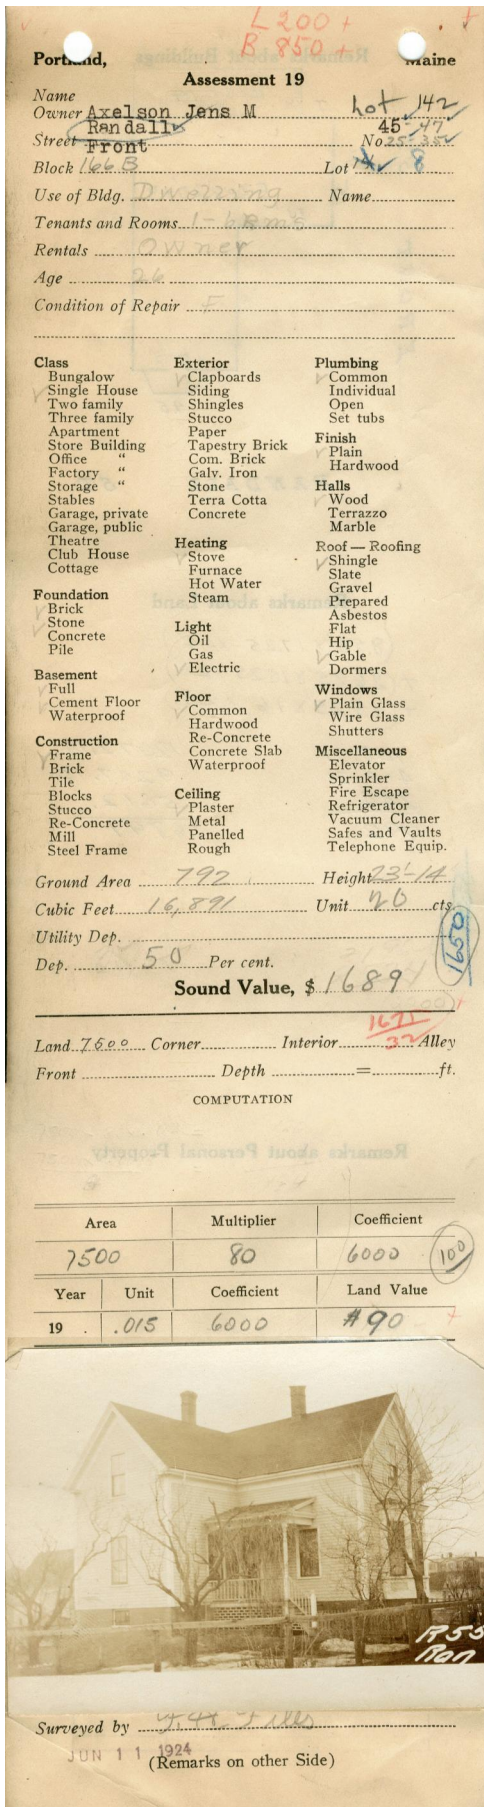 L 200 +
B 850 +
Portland, Maine
Assessment 19
Name
Owner Axelson Jens M Lot 142
Randall 45-47
Street Front No 25-35
Block 166 B Lot 8
Use of Bldg. Dwelling Name
Tenants and Rooms 1-6 rms
Rentals Owner
Age 26
Condition of Repair F
Class
Bungalow
Single House
Two family
Three family
Apartment
Store Building
Office "
Factory "
Storage "
Stables
Garage, private
Garage, public
Theatre
Club House
Cottage
Foundation
Brick
Stone
Concrete
Pile
Basement
Full
Cement Floor
Waterproof
Construction
Frame
Brick
Tile
Blocks
Stucco
Re-Concrete
Mill
Steel Frame
Exterior
Clapboards
Siding
Shingles
Stucco
Paper
Tapestry Brick
Com. Brick
Galv. Iron
Stone
Terra Cotta
Concrete
Heating
Stove
Furnace
Hot Water
Steam
Light
Oil
Gas
Electric
Floor
Common
Hardwood
Re-Concrete
Concrete Slab
Waterproof
Ceiling
Plaster
Metal
Panelled
Rough
Plumbing
Common
Individual
Open
Set tubs
Finish
Plain
Hardwood
Halls
Wood
Terrazzo
Marble
Roof — Roofing
Shingle
Slate
Gravel
Prepared
Asbestos
Flat
Hip
Gable
Dormers
Windows
Plain Glass
Wire Glass
Shutters
Miscellaneous
Elevator
Sprinkler
Fire Escape
Refrigerator
Vacuum Cleaner
Safes and Vaults
Telephone Equip.
Ground Area 792 Height 23'-14
Cubic Feet 16,891 Unit 20 cts.
Utility Dep. 1650
Dep. 50 Per cent.
Sound Value, $ 1689
1675
32
Land 7500 Corner Interior Alley
Front Depth = ft.
COMPUTATION
Area Multiplier Coefficient
7500 80 6000 100
Year Unit Coefficient Land Value
19 . .015 6000 #90 +
R55
Ran
Surveyed by
JUN 11 1924
(Remarks on other Side)